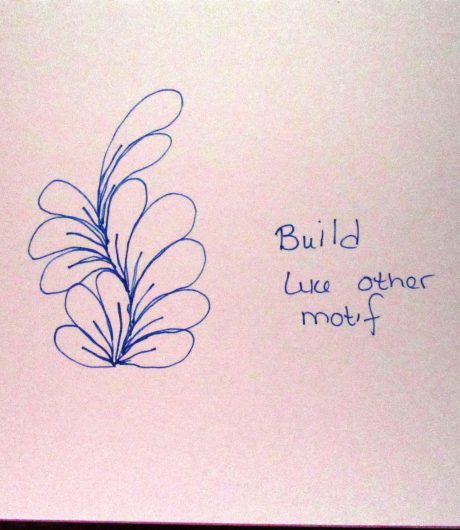 Build
Like other
motif